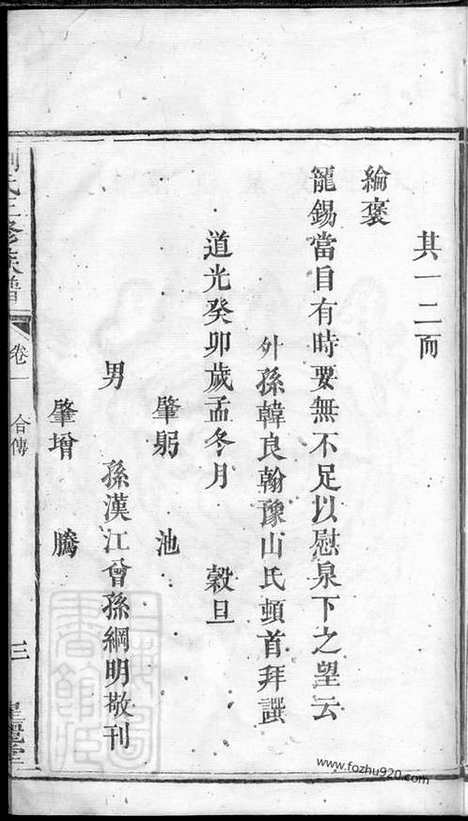 其一二而
綸褒
寵錫當自有時要無不足以慰泉下之望云
外孫韓良翰豫山氏頓首拜譔
道光癸卯歲孟冬月 穀旦
肇躬 池
男 孫漢江曾孫綱明敬刊
肇增 騰
氏三修族譜
卷一 合傳
三
www.fozhu920.com